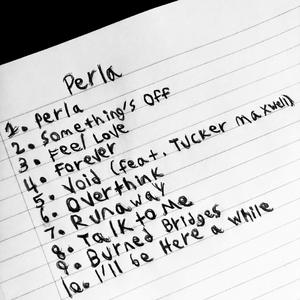 Perla
1. Perla
2. Something's Off
3. Feel Love
4. Forever
5. Void (feat. Tucker Maxwell)
6. Overthink
7. Runaway
8. Talk to Me
9. Burned Bridges
10. I'll be Here a While